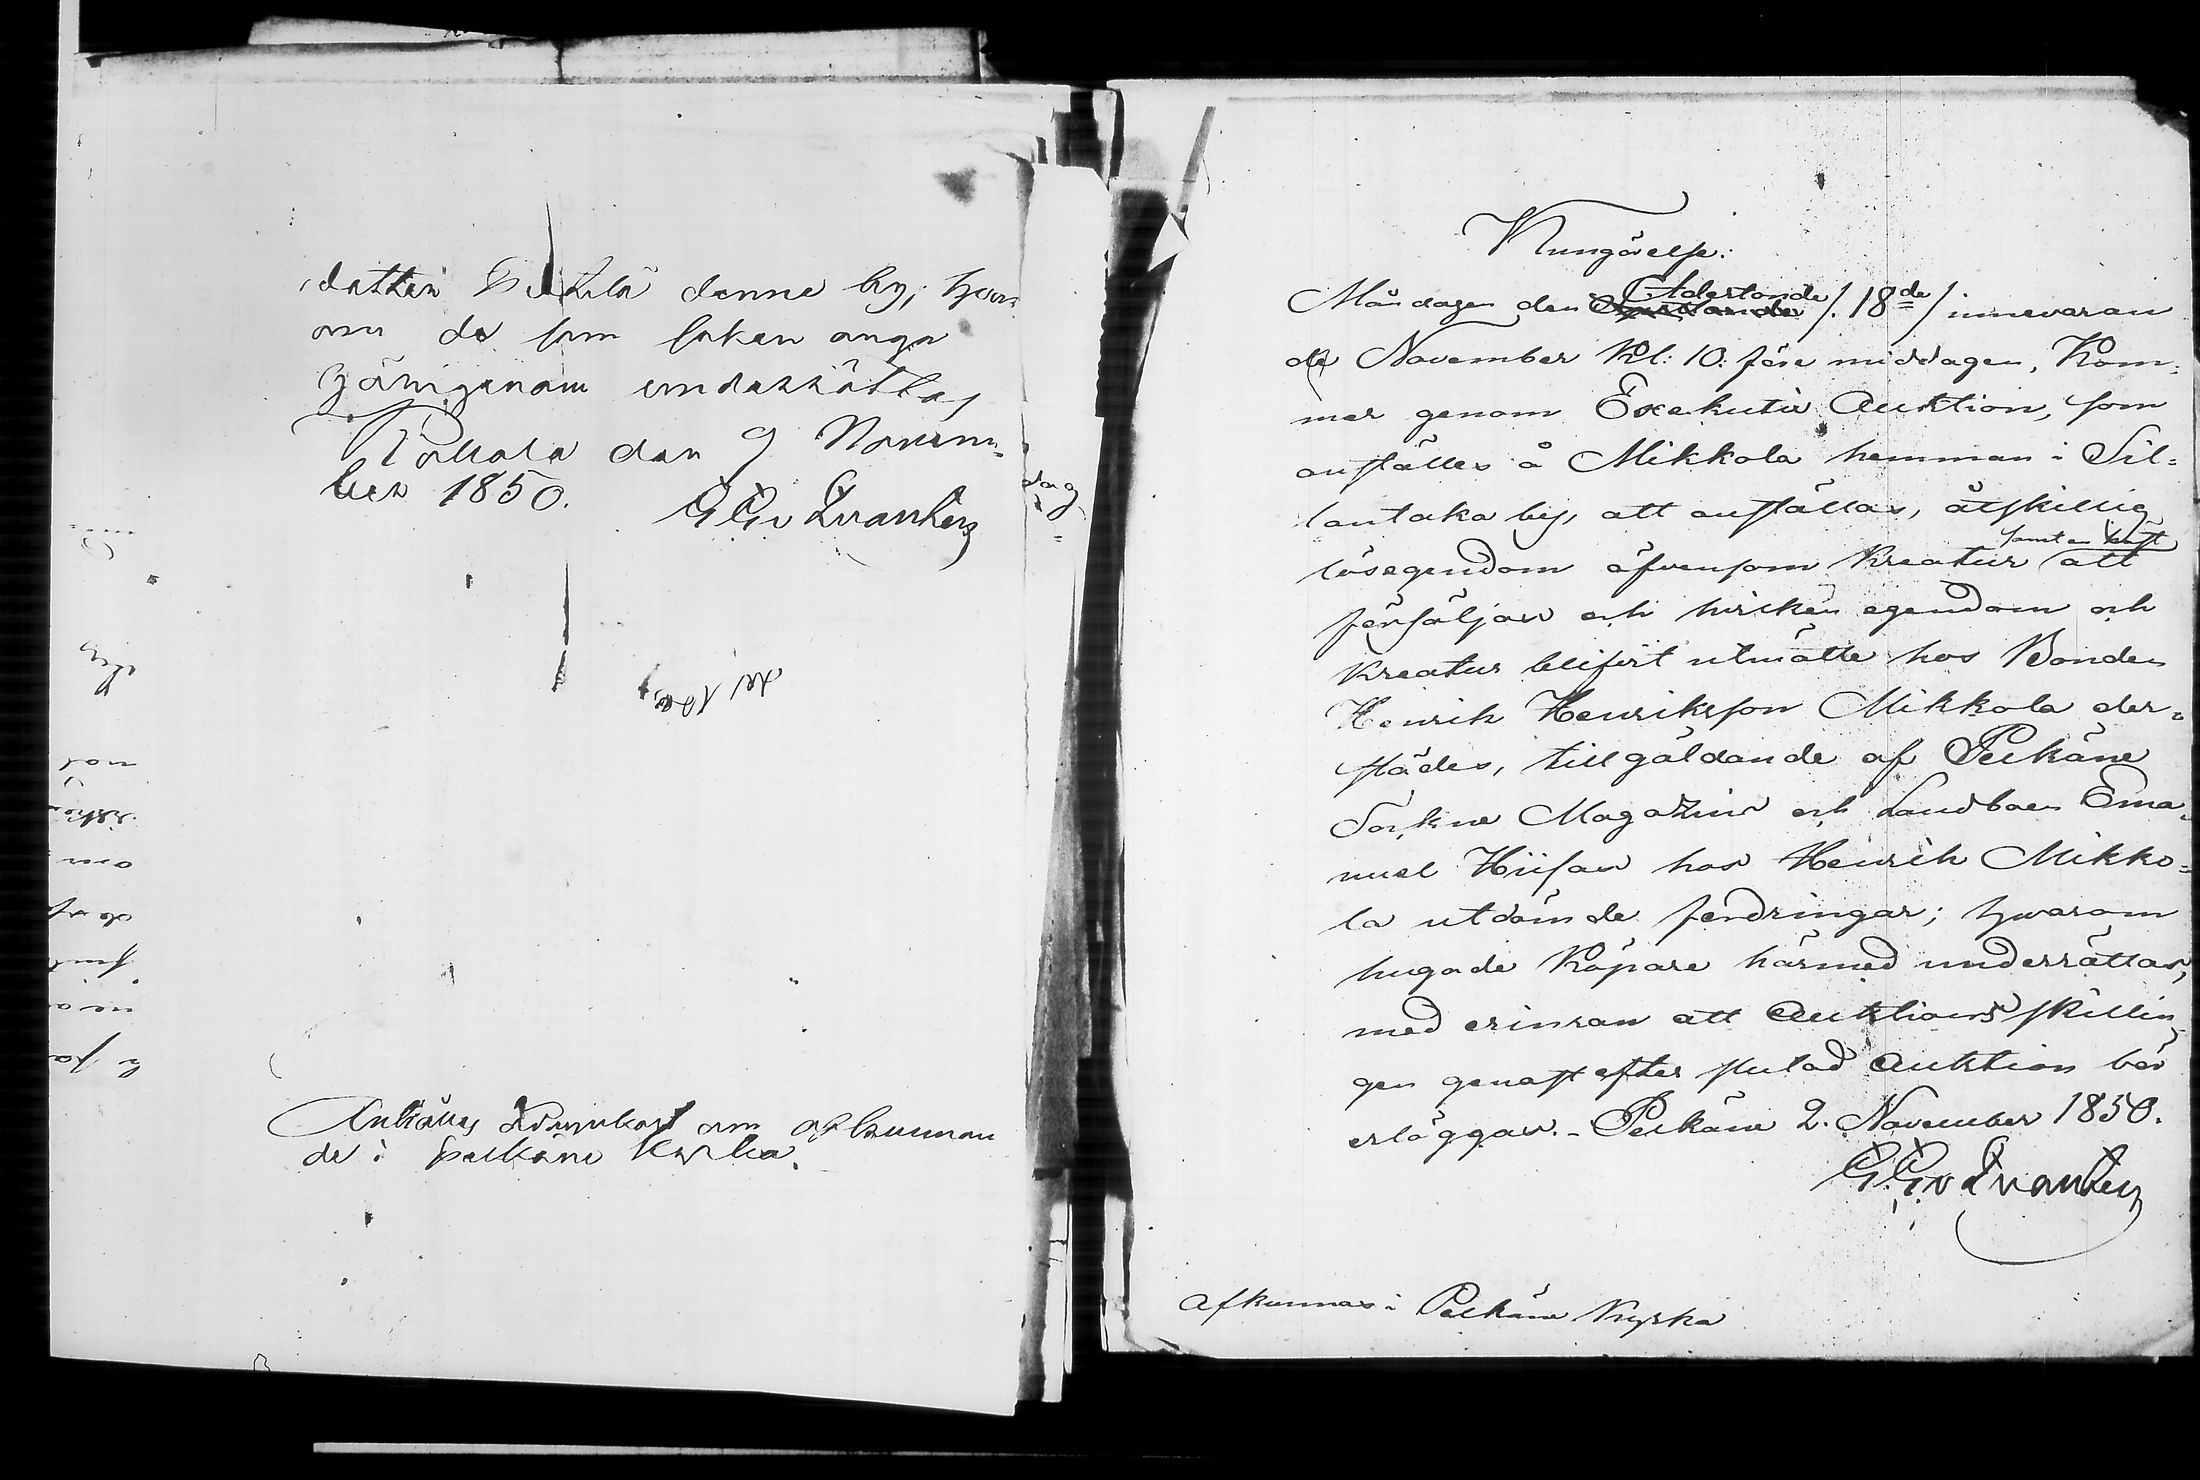 dotter Seckelä denne by; hvar-
om de som saken angå
härigenom underrättas
Pakola den 9 Novem-
ber 1850.
G Gv Qvanberg
dag
om afkunnan
de i Pelkäne Kyrka.
Kungörelse:
Måndagen den Adertonde /: 18de / innevaran
de November Kl: 10. före middagen, Kom-
mer genom Exekutiv Auktion, som
anställes å Mikkola hemman i Sil-
lantaka by, att anställas, åtskillig
samt en häst
lösegendom äfvensom Kreatur att
försäljas och hvilken egendom och
Kreatur blifvit utmätte hos Bonden
Henrik Henriksson Mikkola der-
städes, till gäldande af Pelkäne
Sockne Magazins och Landboen Ema-
nuel Hiisas hos Henrik Mikko-
la utdömde fordringar; hvarom
hugade Köpare härmed underrättas,
med erinran att Auktions skillin-
gen genast efter slutad Auktion bör
erläggas. - Pelkäne 2. November 1850.
G Gv Qvanberg
Afkunnas i Pelkäne Kyrka